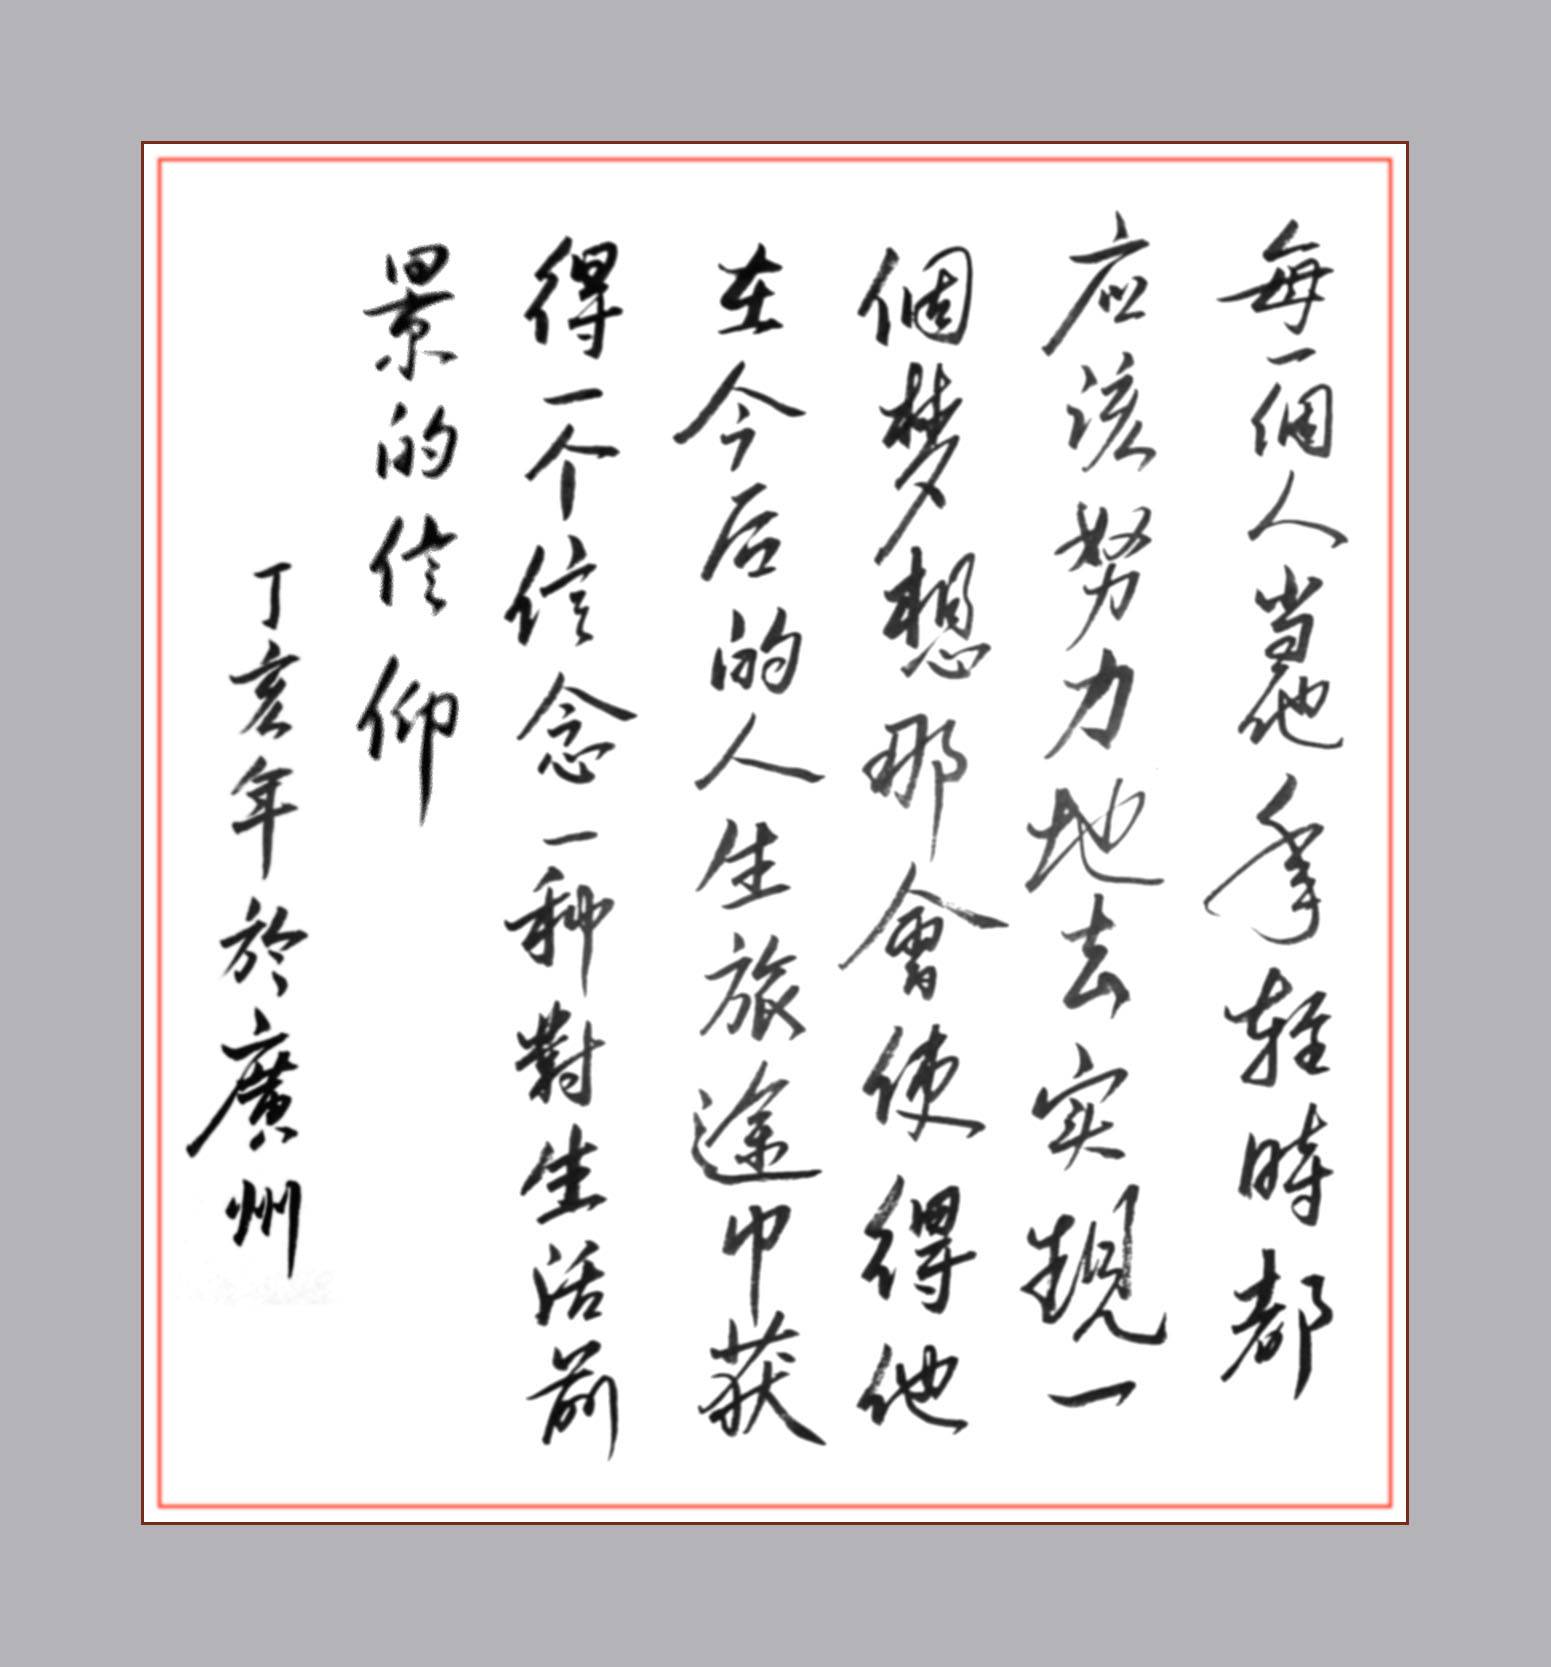 每一個人当他年轻時都
应该努力地去实現一
個梦想那會使得他
在今后的人生旅途中获
得一个信念一种對生活前
景的信仰
丁亥年於廣州